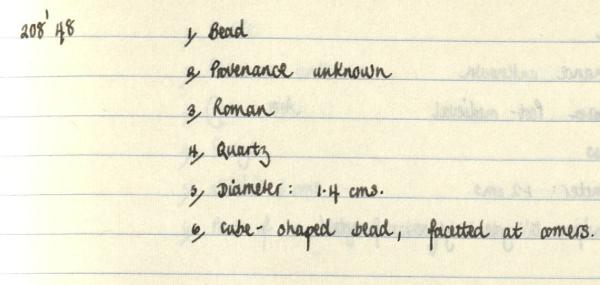 208' 48 1, Bead
2, Provenance unknown
3, Roman
4, Quartz
5, Diameter: 1.4 cms.
6, Cube-shaped bead, facetted at corners.